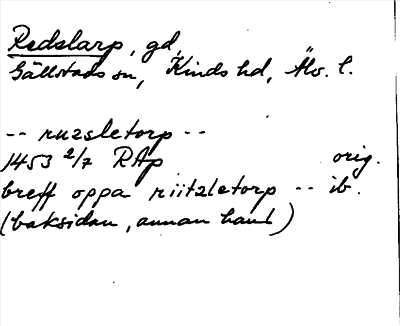 Redslarp, gd,
Gällstads sn, Kinds hd, Älv. l.
-- ruzsletorp --
1453 2/7 RAp orig.
breff oppa riitzletorp -- ib.
(baksidan, annan hand)